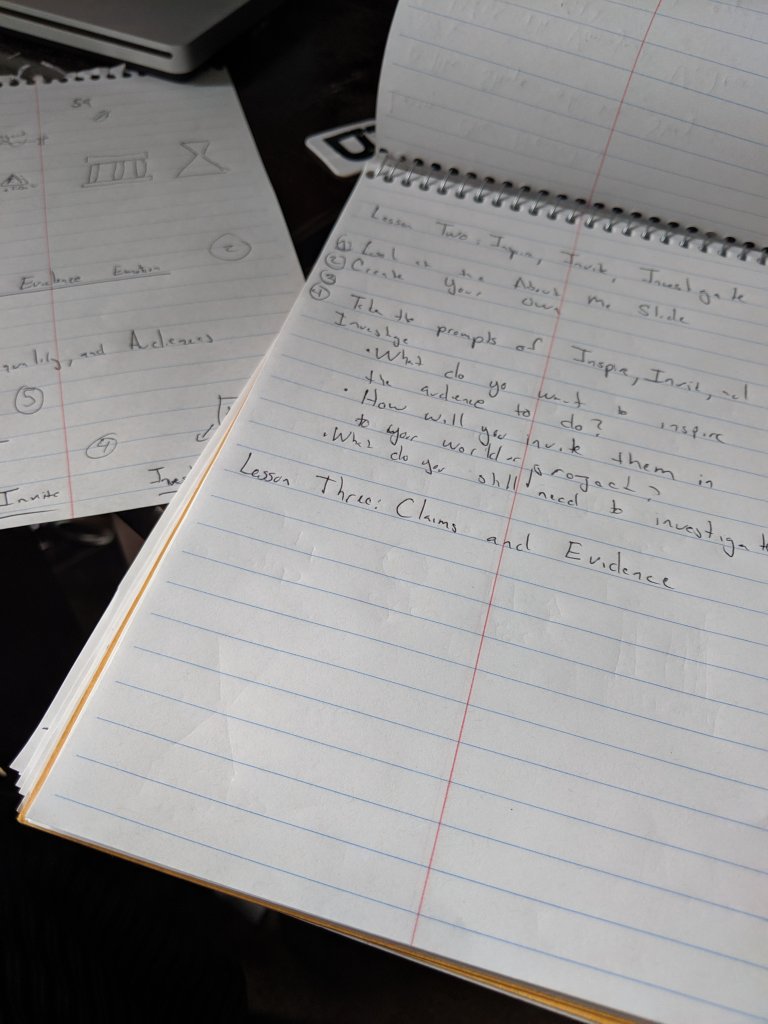 59
Evidence Emotion
and
5
4
Invite
Lesson Two: Inspire, Invite, Investigate
1 Look at the About Me Slide
2 Create your own
3
4 Take the prompts of Inspire, Invit, and
Investige
• What do yo want to inspire
the audience to do?
• How will you invite them in
to your world or project?
• What do you still need to investigate
Lesson Three: Claims and Evidence